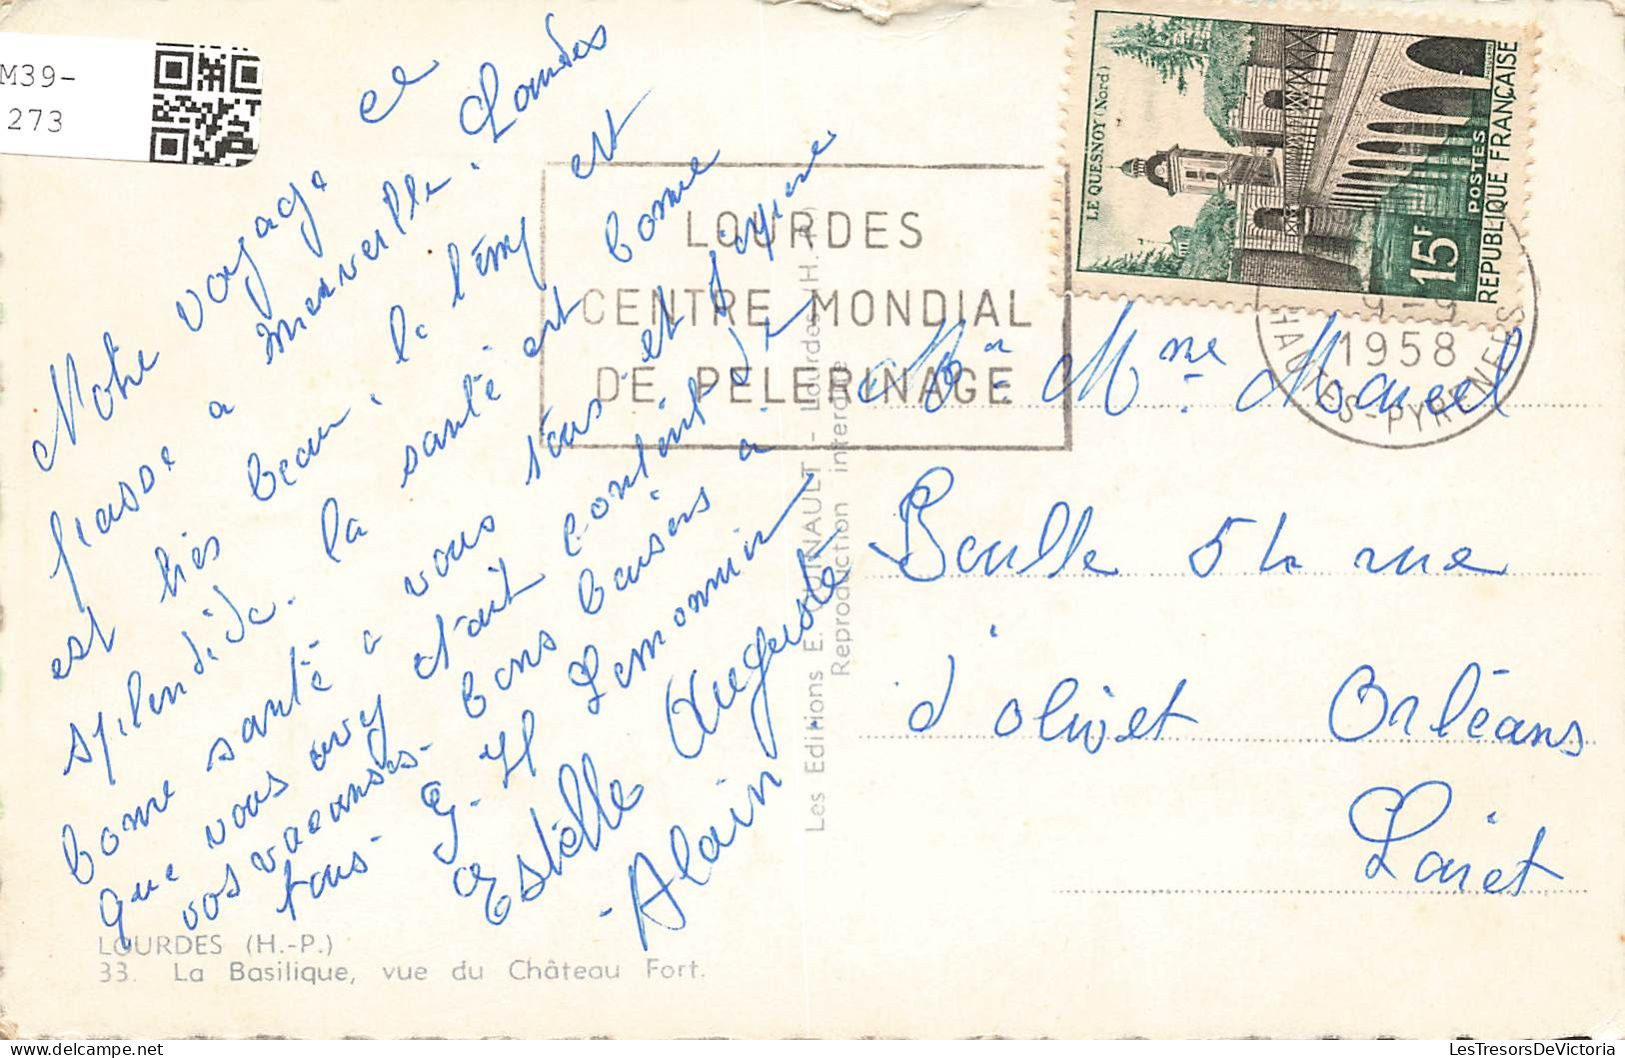 M39-
273
Notre voyage ce
passe a merveille. Lourdes
est très beau. le temp est
splendide. la santé est bonne
bonne santé a vous tous. et J'espère
que vous avez était content de
vos vacances. bons baisers a
tous. G. H Lemonnier
Estelle Auguste
Alain
LOURDES (H.-P.)
33. La Basilique, vue du Château Fort.
Les Editions E. - Lourdes (H.
Reproduction interdite
LOURDES
CENTRE MONDIAL
DE PELERINAGE
LE QUESNOY (Nord)
15F
POSTES
REPUBLIQUE FRANÇAISE
1958
HAUTES-PYRENEES
Mme Marcel
Boulle 54 rue
d'olivet Orléans
Loiret
LesTresorsDeVictoria